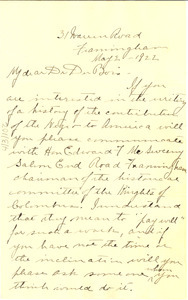 31 Warren Road
Framingham
May 2 - 1922
My dear Dr. Du Bois -
If you
are interested in the writing
of a history of the contribution
of the Negro to America will
you please communicate
with Hon. Edward F. Mc Sweeney
Salem End Road Framingham
chairman of the historical
committee of the Knights of
Columbus, I understand
that they mean to "pay well"
for such a work, and if
you have not the time or
the inclination will you
please ask some one you
think would do it.